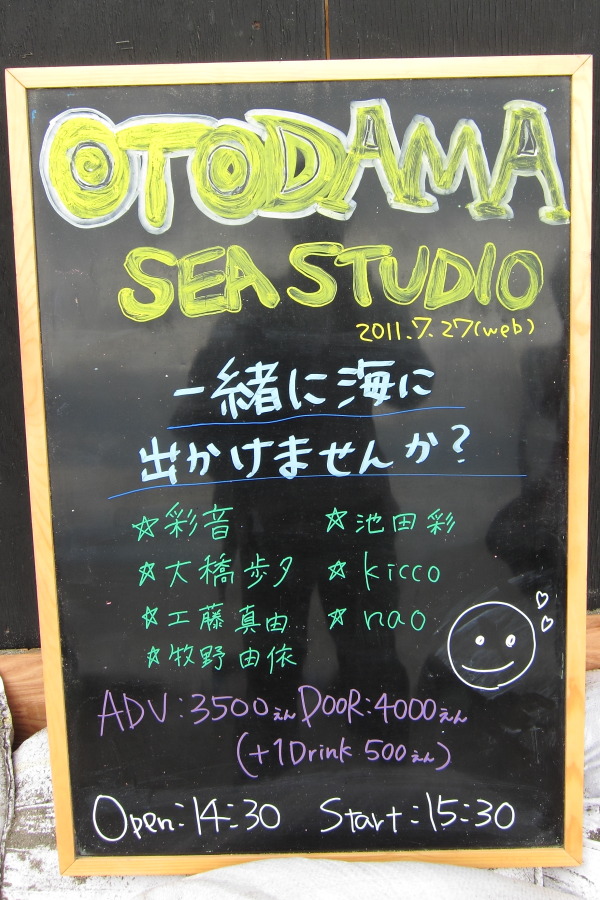 OTODAMA
SEA STUDIO
2011.7.27(web)
一緒に海に
出かけませんか?
☆彩音 ☆池田彩
☆大橋歩夕 ☆kicco
☆工藤真由 ☆nao
☆牧野由依
ADV:3500えん DOOR:4000えん
(+1Drink 500えん)
Open:14:30 Start:15:30